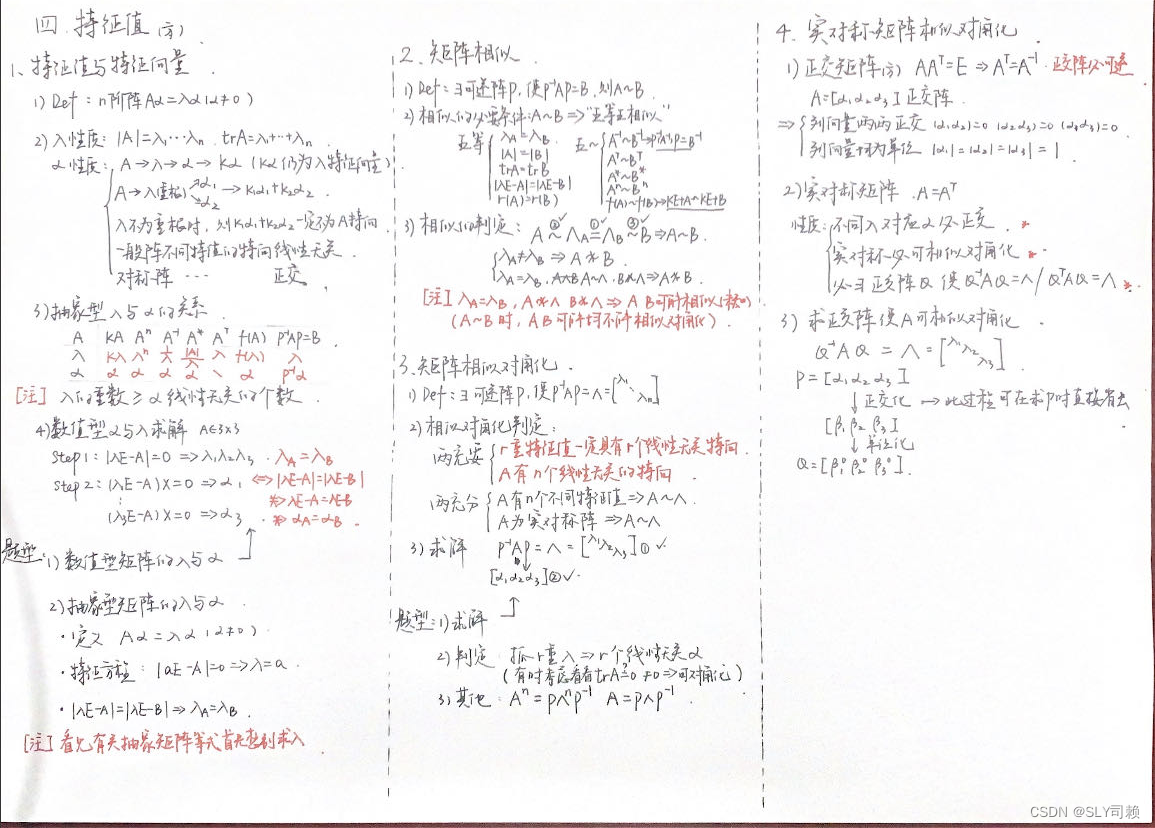 四. 特征值(方).
1、特征值与特征向量.
1) Def: n阶阵Aα=λα(α≠0)
2) λ性质: |A|=λ₁…λₙ. trA=λ₁+…+λₙ.
α性质: A→λ→α→kα (kα仍为λ特征向量)
A→λ(重根)→α₁ α₂ → k₁α₁+k₂α₂.
λ不为重根时, 则k₁α₁+k₂α₂一定不为A特向
一般阵不同特值的特向线性无关.
对称阵 … 正交.
3) 抽象型λ与α的关系
A kA Aⁿ A⁻¹ A* Aᵀ f(A) P⁻¹AP=B.
λ kλ λⁿ 1/λ |A|/λ λ f(λ) λ
α α α α α \ α P⁻¹α
[注] λ的重数≥α线性无关的个数.
4) 数值型α与λ求解 A∈3×3
Step1: |λE-A|=0 ⇒λ₁λ₂λ₃. λA=λB
Step2: (λ₁E-A)X=0 ⇒α₁ ⇔|λE-A|=|λE-B|
⋮ ⇏λE-A=λE-B
(λ₃E-A)X=0 ⇒α₃. ⇏αA=αB.
题型: 1) 数值型矩阵的λ与α
2) 抽象型矩阵的λ与α.
· 定义 Aα=λα (α≠0).
· 特征方程: |aE-A|=0⇒λ=a.
· |λE-A|=|λE-B|⇒λA=λB.
[注] 看见有关抽象矩阵等式首先想到求λ
2. 矩阵相似.
1) Def: ∃可逆阵P, 使P⁻¹AP=B, 则A~B.
2) 相似的必要条件: A~B⇒"五等五相似"
五等 λA=λB
|A|=|B|
trA=trB
|λE-A|=|λE-B|
r(A)=r(B)
五~ A⁻¹~B⁻¹→P⁻¹A⁻¹P=B⁻¹
Aᵀ~Bᵀ
A*~B*
Aⁿ~Bⁿ
f(A)~f(B)→kE+A~kE+B
3) 相似的判定: A ②✓~ ΛA ①✓= ΛB ③✓~ B⇒A~B.
λA≠λB ⇒ A≁B.
λA=λB, A~Λ, B≁Λ⇒A≁B.
[注] λA=λB, A≁Λ B≁Λ⇒A B可能相似
(A~B时, A B可能均不能相似对角化).
3. 矩阵相似对角化.
1) Def: ∃可逆阵P, 使P⁻¹AP=Λ=[λ₁ ⋱ λₙ].
2) 相似对角化判定:
两充要 r重特征值一定具有r个线性无关特向.
A有n个线性无关的特向.
两充分 A有n个不同特征值⇒A~Λ.
A为实对称阵 ⇒A~Λ
3) 求解 P⁻¹AP=Λ=[λ₁λ₂λ₃]① ✓.
[α₁α₂α₃]②✓.
题型: 1) 求解
2) 判定. 抓r重λ⇒r个线性无关α
(有时考虑看看trA=0 ≠0⇒可对角化)
3) 其他: Aⁿ=PΛⁿP⁻¹ A=PΛP⁻¹.
4. 实对称矩阵相似对角化.
1) 正交矩阵(方) AAᵀ=E ⇒Aᵀ=A⁻¹. 正交阵必可逆
A=[α₁α₂α₃]正交阵.
⇒ 列向量两两正交 (α₁α₂)=0 (α₂α₃)=0 (α₁α₃)=0.
列向量均为单位 |α₁|=|α₂|=|α₃|=1.
2) 实对称矩阵. A=Aᵀ
性质: 不同λ对应α必正交. *
实对称必可相似对角化 *.
必∃正交阵Q 使Q⁻¹AQ=Λ/QᵀAQ=Λ *.
3) 求正交阵使A可相似对角化.
Q⁻¹AQ=Λ=[λ₁λ₂λ₃]
P=[α₁α₂α₃]
↓正交化 → 此过程可在求P时直接省去
[β₁β₂β₃]
↓单位化
Q=[β₁°β₂°β₃°].
CSDN @SLY司赖